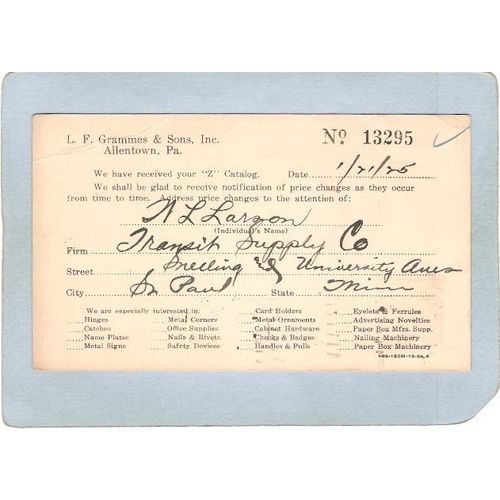 L. F. Grammes & Sons, Inc.
Allentown, Pa.
Nº 13295
We have received your "Z" Catalog. Date 1/21/25
We shall be glad to receive notification of price changes as they occur
from time to time. Address price changes to the attention of:
N L Larson
(Individual's Name)
Firm Transit Supply Co
Street Snelling & University Aves
City St Paul State Minn
We are especially interested in:
Hinges
Catches
Name Plates
Metal Signs
Metal Corners
Office Supplies
Nails & Rivets
Safety Devices
Card Holders
Metal Ornaments
Cabinet Hardware
Checks & Badges
Handles & Pulls
Eyelets & Ferrules
Advertising Novelties
Paper Box Mfrs. Supp.
Nailing Machinery
Paper Box Machinery